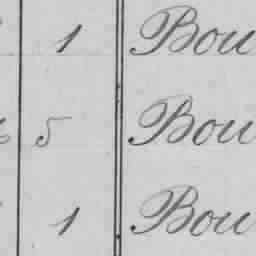 1 Bou
5 Bou
1 Bou